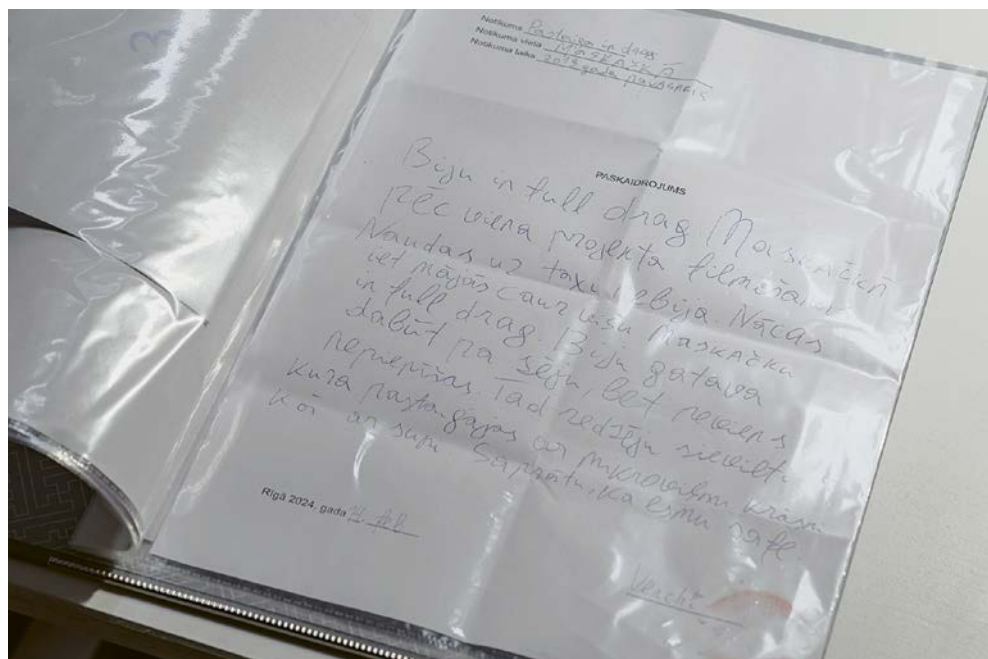 Notikums Pastaiga in drag
Notikuma vieta MASKAČKĀ
Notikuma laiks 2019 gada pavasaris
PASKAIDROJUMS
Biju in full drag Maskačkā
pēc viena projekta filmēšanas
Naudas uz taxi nebija. Nācās
iet mājās caur visu Maskačku
in full drag. Biju gatava
dabūt pa seju, bet neviens
nepiepisās. Tad redzēju sievieti
kura pastaigājas ar mikroviļņu krāsni
kā ar suni. Sapratu, ka esmu safe.
Rīgā 2024. gada 14. feb